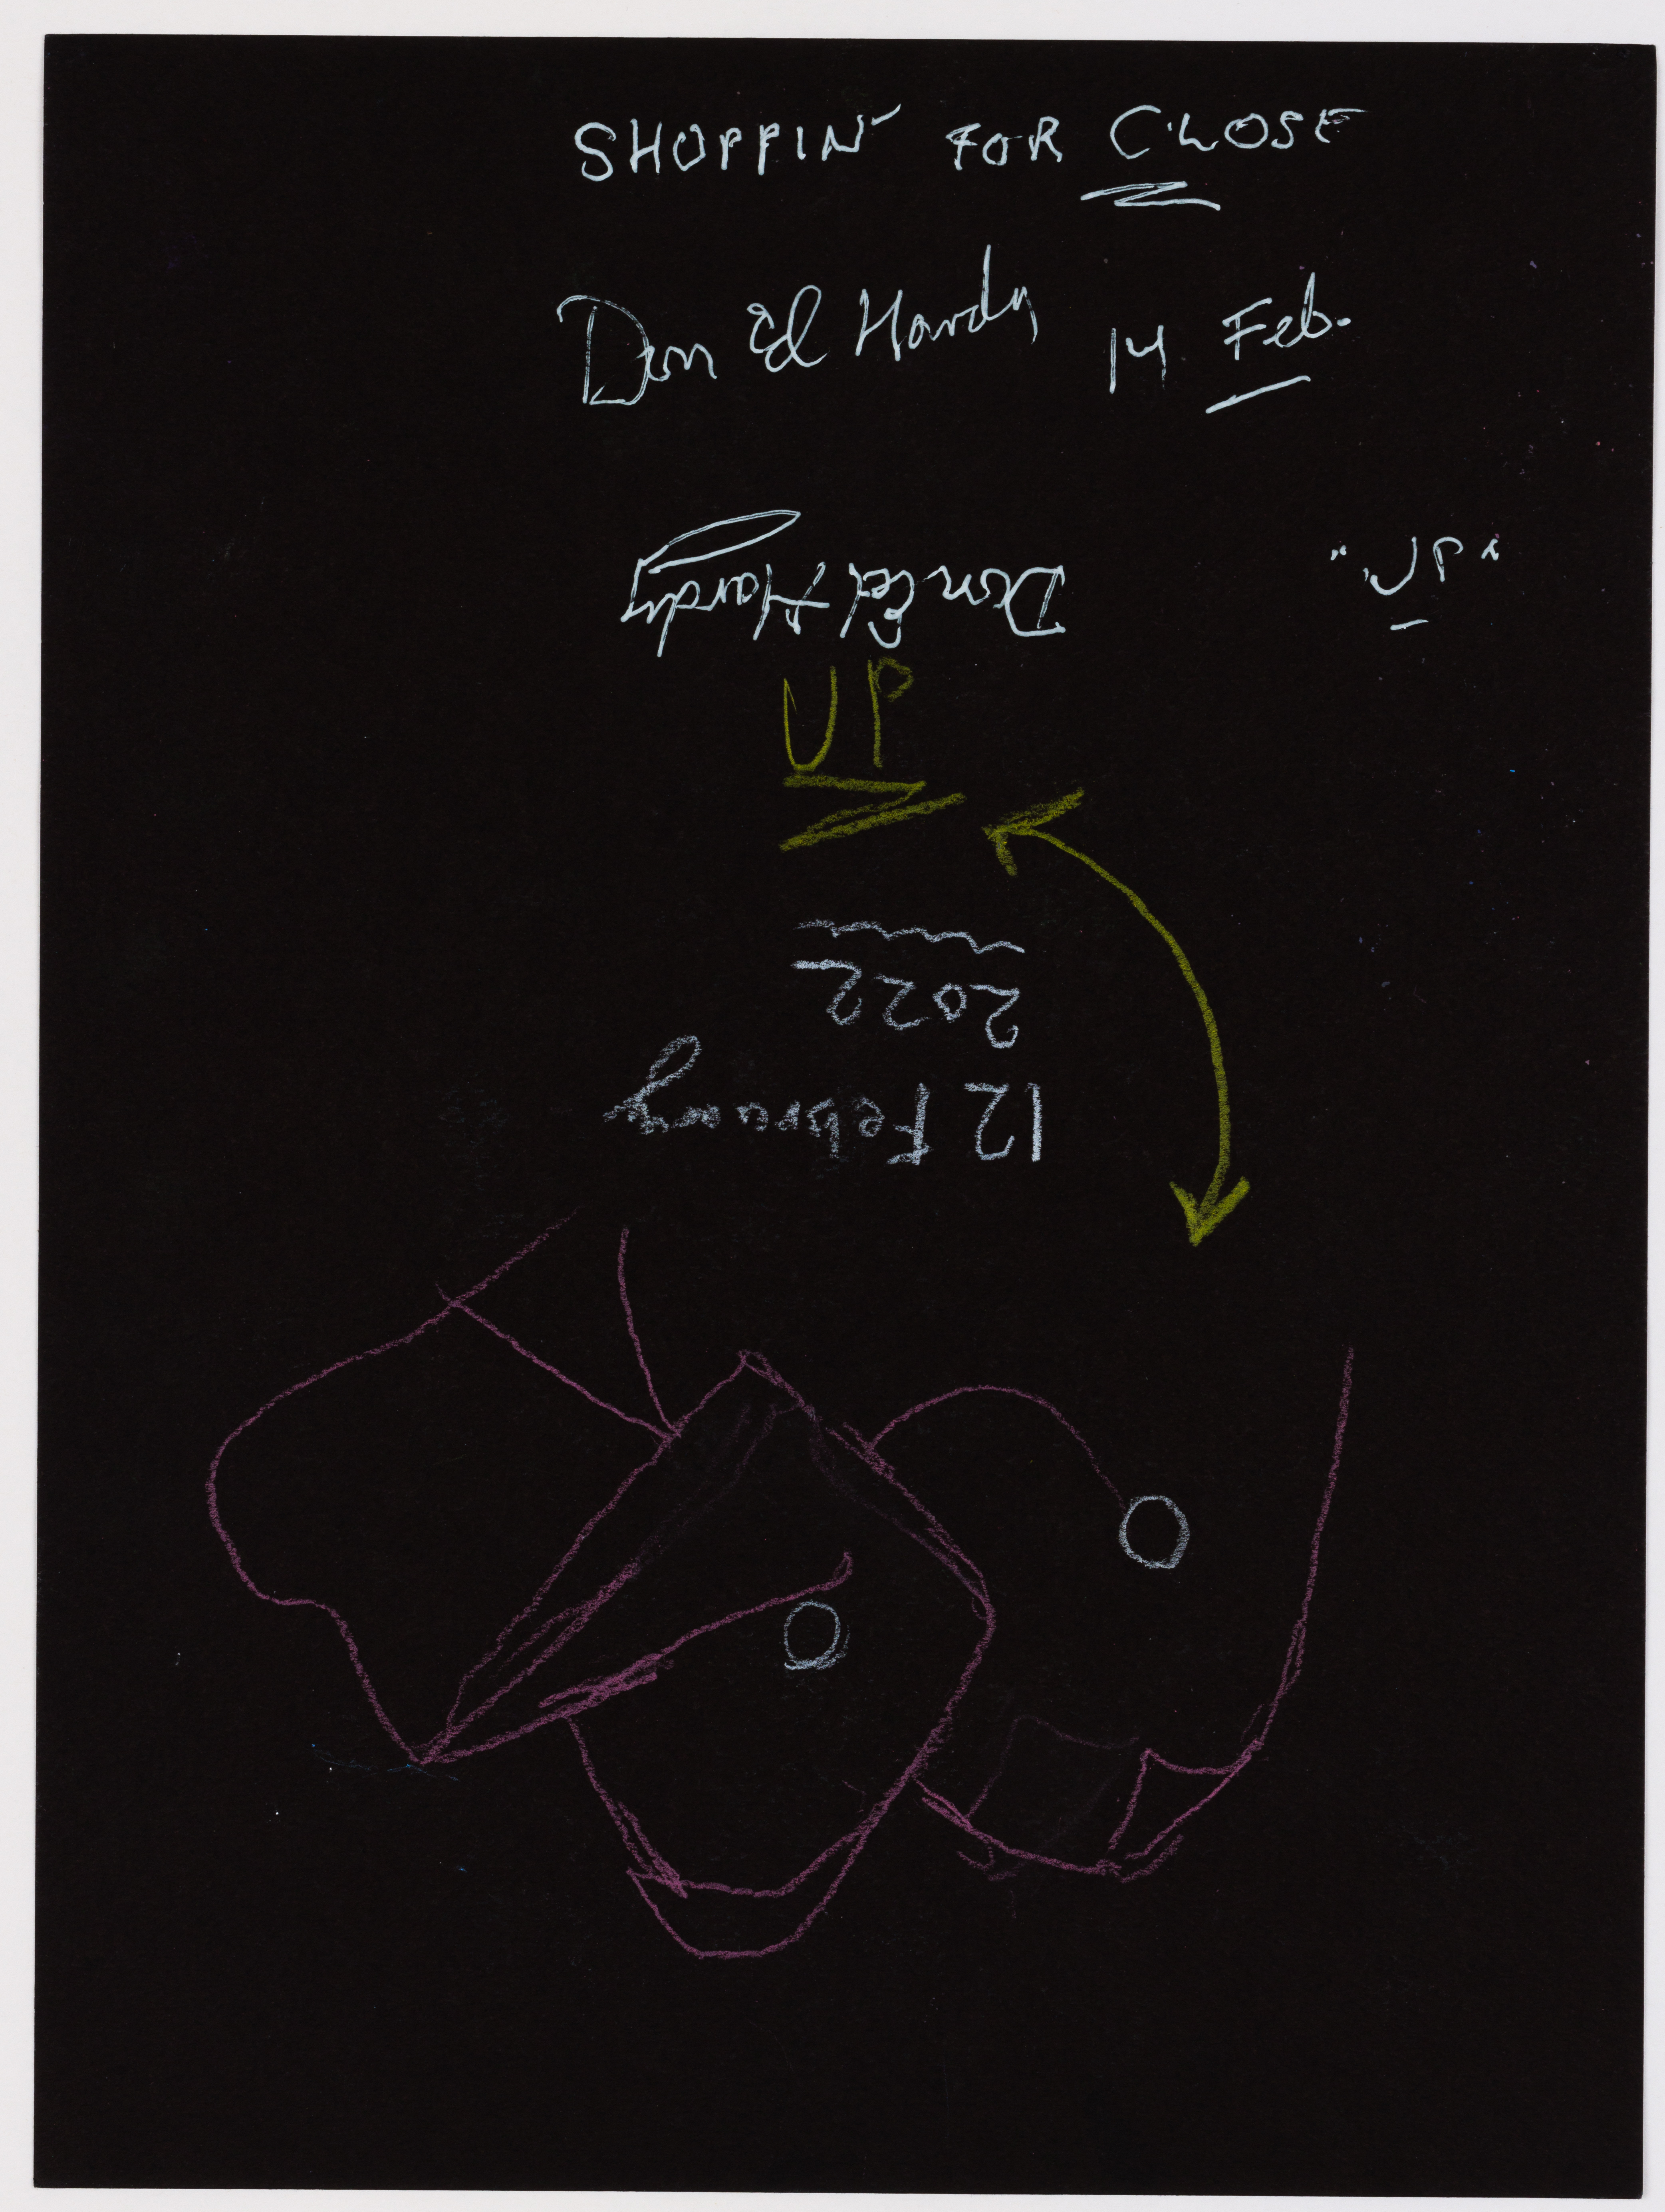 SHOPPIN' FOR CLOSE
Don Ed Hardy 14 Feb.
"UP"
Don Ed Hardy
UP
12 February
2022